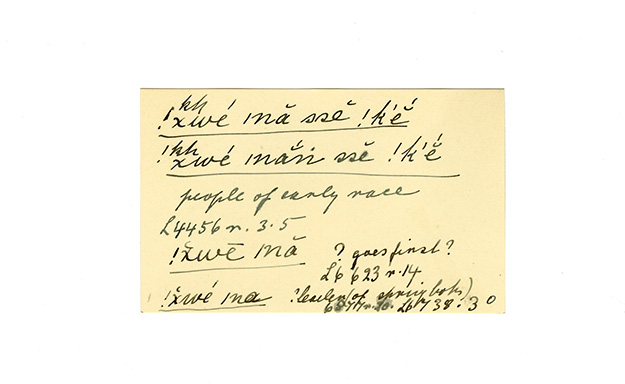 !kh žwé ǀnă ssĕ !k'ĕ́
!kh žwé ǀnăn ssĕ !k'ĕ́
people of early race
L4456 r. 3.5
!žwē ǀnă ? goes first?
L6 623 r.14
!žwé ǀna ?leader of springboks)
L6 738. 30